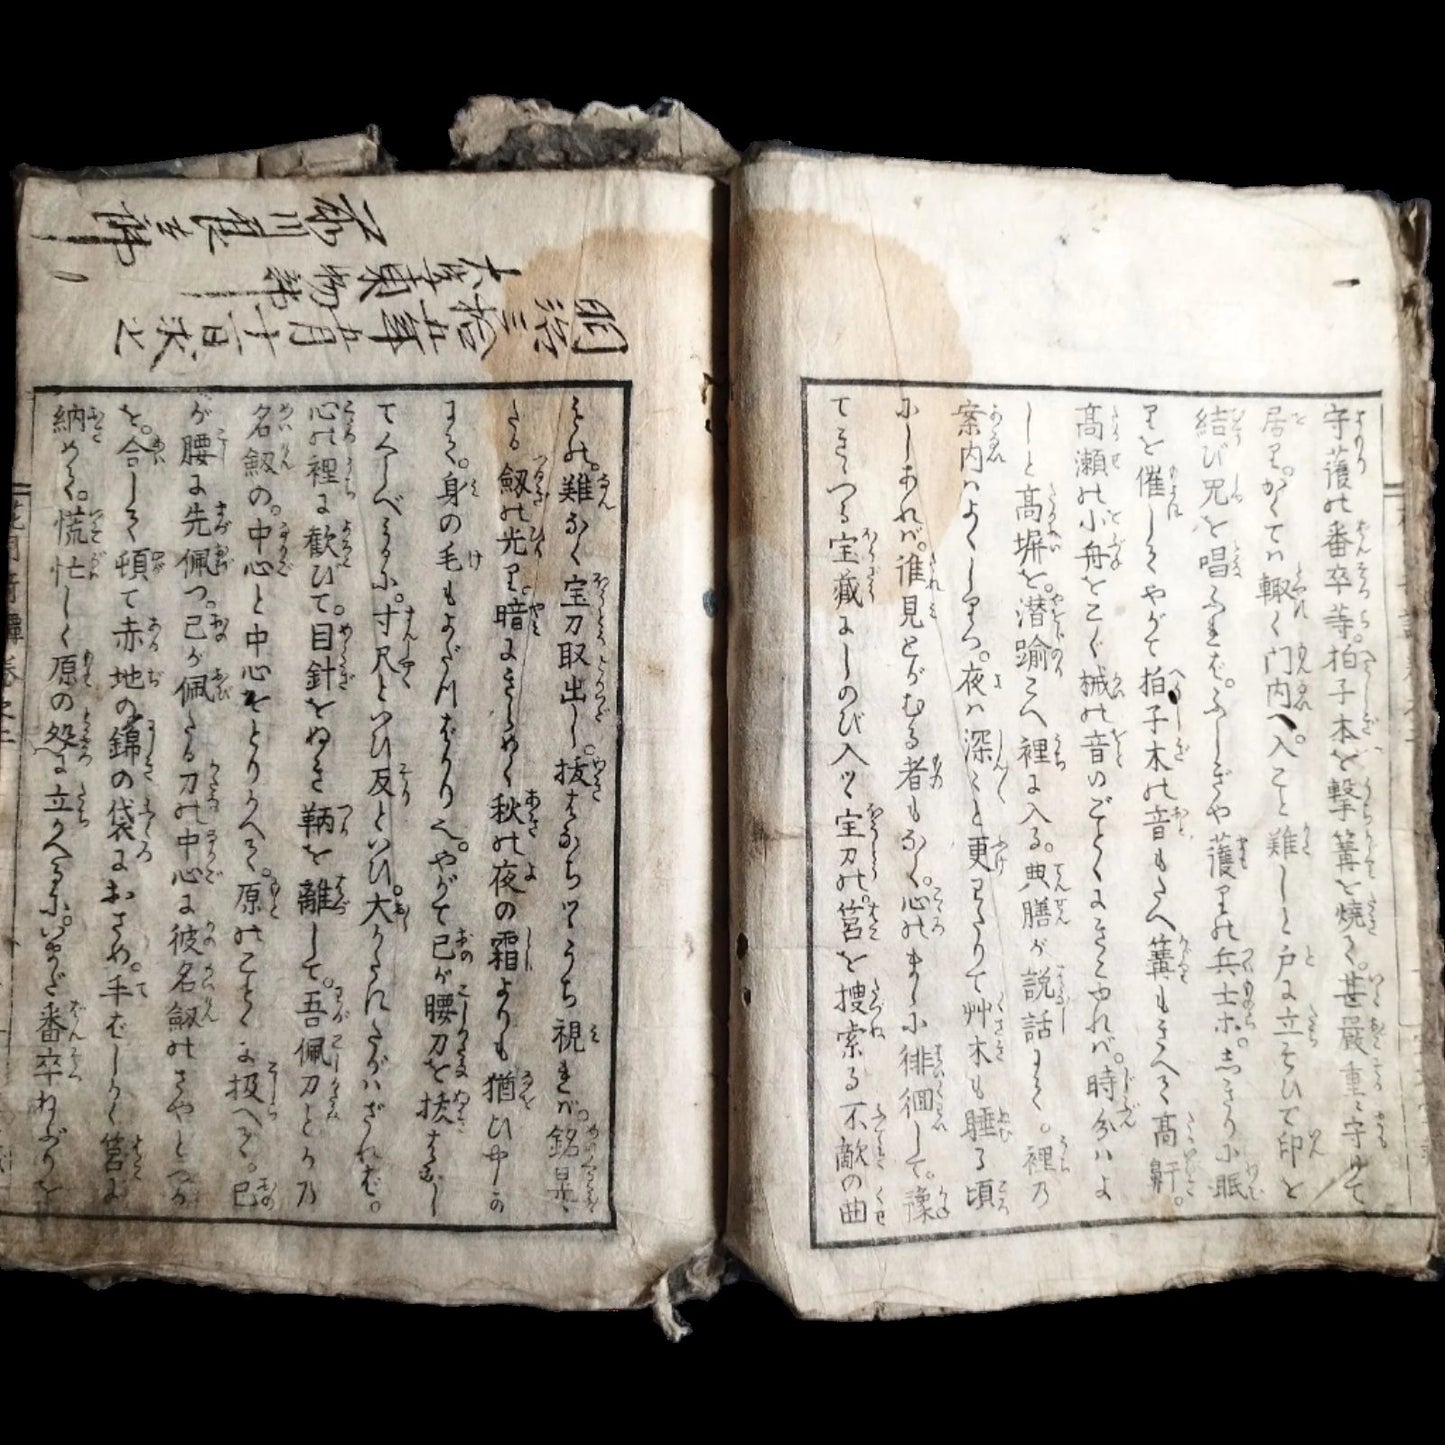 守護の番卒等。拍子木を撃篝を焼て。甚嚴重に守りゆて
居り。かくては輙く門内へ入こと難しと戸に立そひて印を
結び咒を唱ふれば。ふしぎや護りの兵士ホ。しきりに眠
りを催してやがて拍子木の音もたへ篝もきへて髙鼾。
髙瀬の小舟をこぐ械の音のごとくにきこゆれば。時分はよ
しと髙塀を。潜踰こへ裡に入る。典膳が説話にて。裡の
案内はよくしりつ。夜は深々と更わたりて艸木も睡る頃
にしあれば。誰見とがむる者もなく。心のまゝに徘徊して。豫
てきゝつる宝藏にしのび入ッ宝刀の筥を捜索る不敵の曲
難なく宝刀取出し。抜はなちッうち視れば。銘是
たる劔の光り。暗にきらめく秋の夜の霜よりも猶ひやゝか
にて。身の毛もよだつばかり也。やがて己が腰刀を抜はなし
てくらべみるに。寸尺といひ反といひ。大かたにたがはざれば。
心の裡に歓びて。目針をぬき鞆を離して。吾佩刀とかの
名劔の。中心と中心をとりかへて。原のごとくに扱へて。己
が腰に先佩つ。己が佩たる刀の中心に彼名劔のさやとつか
を。合して頓て赤地の錦の袋におさめ。手ばしかく筥に
納めて。慌忙しく原の処に立かへるに。いまだ番卒ねぶりを
明治三拾五年五月十一日求之
大字東物部
西川貞